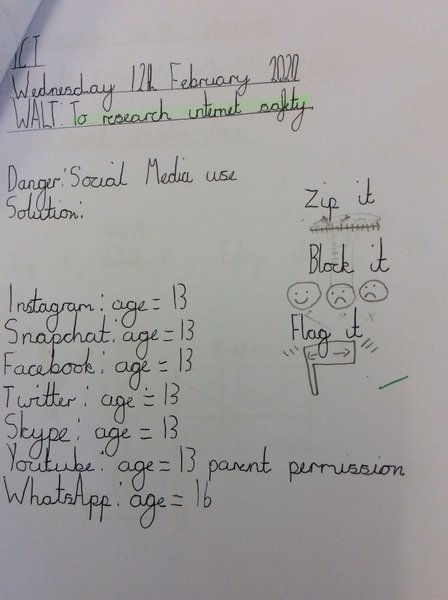 ICT
Wednesday 12th February 2020
WALT: To research internet safety
Danger: Social Media use
Solution:
Zip it
Block it
Flag it
Instagram: age = 13
Snapchat: age = 13
Facebook: age = 13
Twitter: age = 13
Skype: age = 13
Youtube: age = 13 parent permission
WhatsApp: age = 16